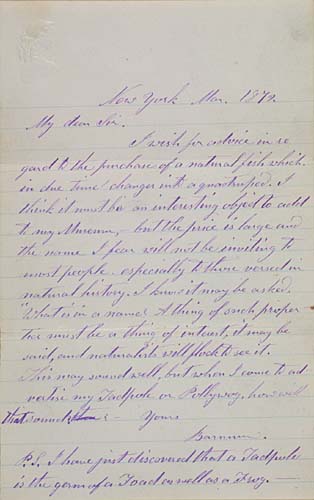 New York Mar. 1872.
My dear Sir.
I wish for advice in re
gard to the purchase of a natural fish which
in due time changes into a quadruped. I
think it must be an interesting object to add
to my Museum, but the price is large and
the name I fear will not be inviting to
most people, especially to those versed in
natural history. I know it may be asked.
What is in a name? A thing of such proper
ties must be a thing of interest, it may be
said, and naturalists will flock to see it.
This may sound well, but when I come to ad
vertise my Tadpole or Pollywog, how will
that sound?
Yours
Barnum.
P.S. I have just discovered that a Tadpole
is the germ of a Toad as well as a Frog.—